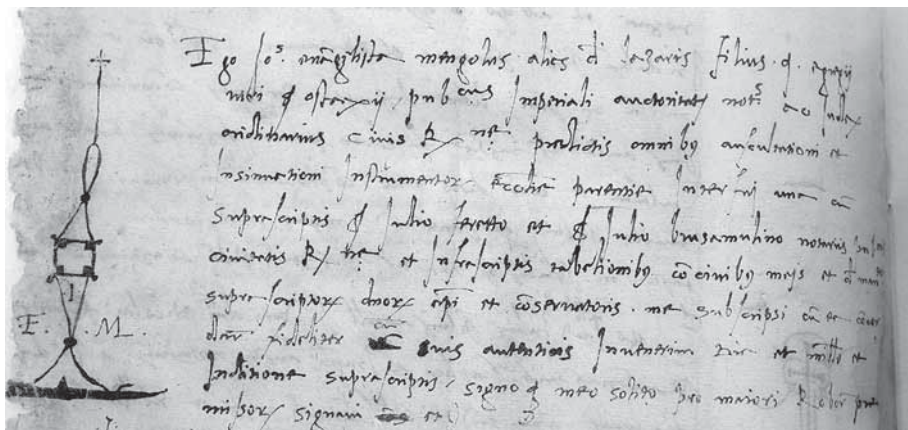 Ego Jo^s. euangelista mengolus alias d lazaris filius. q. egregij
viri d ostaxij / pub^cus Imperiali auctoritate not^s ac Judex
ordinarius Civis R ne predictis omnibus auscultationi et
Insinuationi Instrumentor ecclie parentie Interfui una cu
suprascriptis d Julio feretto et d Julio brusamulino notarijs
civitatis R ne et Infrascriptis tabelionibus concivibus meis et
suprascriptor dnor epi et conservatoris. me subscripsi
fideliter cu suis autenticis Invenerim die et millo et
Inditione suprascriptis / signo q meo solito pro maiori Robor pre
missor signavi et
I
E. M.